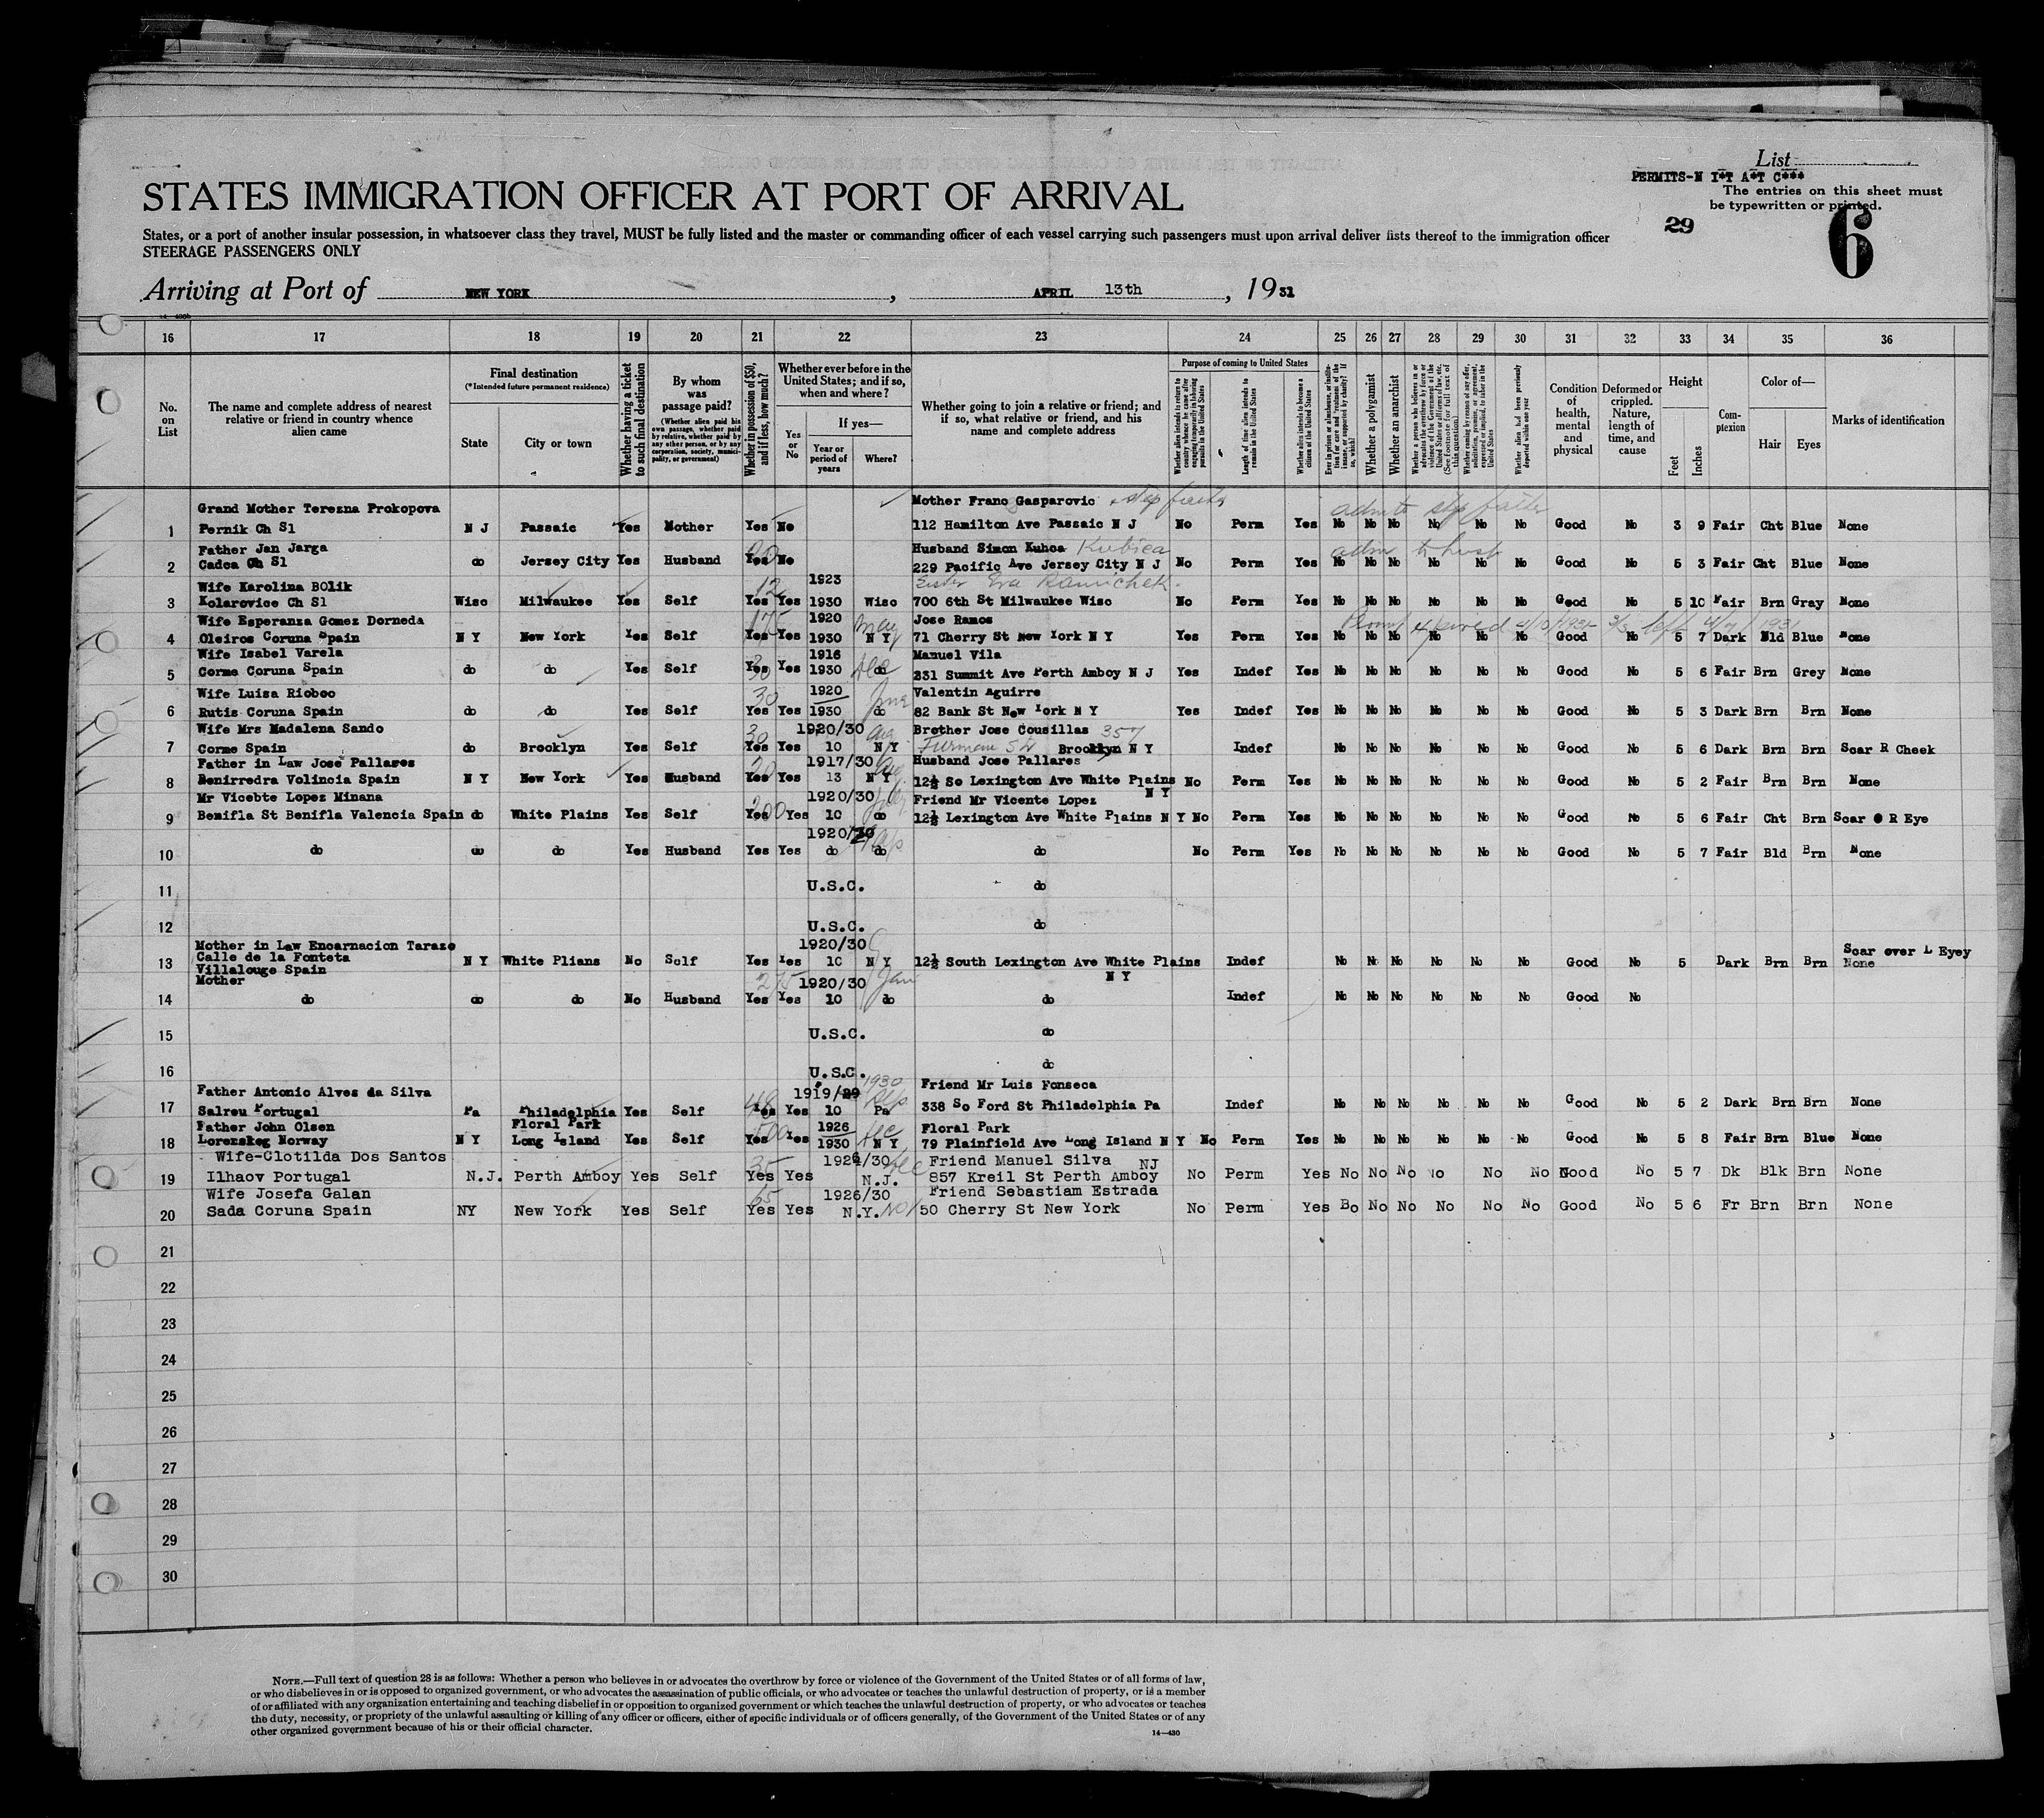 List
PERMITS-N I*T A*T C***
The entries on this sheet must
be typewritten or printed.
29
6
STATES IMMIGRATION OFFICER AT PORT OF ARRIVAL
States, or a port of another insular possession, in whatsoever class they travel, MUST be fully listed and the master or commanding officer of each vessel carrying such passengers must upon arrival deliver lists thereof to the immigration officer
STEERAGE PASSENGERS ONLY
Arriving at Port of NEW YORK, APRIL 13th, 1931
16 17 18 19 20 21 22 23 24 25 26 27 28 29 30 31 32 33 34 35 36
No. on List
The name and complete address of nearest relative or friend in country whence alien came
Final destination
(*Intended future permanent residence)
State
City or town
Whether having a ticket to such final destination
By whom was passage paid?
(Whether alien paid his own passage, whether paid by relative, whether paid by any other person, or by any corporation, society, municipality, or government)
Whether in possession of $50, and if less, how much?
Whether ever before in the United States; and if so, when and where?
Yes or No
If yes—
Year or period of years
Where?
Whether going to join a relative or friend; and if so, what relative or friend, and his name and complete address
Purpose of coming to United States
Whether alien intends to return to country whence he came after engaging temporarily in laboring pursuits in the United States
Length of time alien intends to remain in the United States
Whether alien intends to become a citizen of the United States
Ever in prison or almshouse, or institution for care and treatment of the insane, or supported by charity? If so, which?
Whether a polygamist
Whether an anarchist
Whether a person who believes in or advocates the overthrow by force or violence of the Government of the United States or all forms of law, etc. (See footnote for full text of this question.)
Whether coming by reason of any offer, solicitation, promise, or agreement, expressed or implied, to labor in the United States
Whether alien had been previously deported within one year
Condition of health, mental and physical
Deformed or crippled. Nature, length of time, and cause
Height
Feet
Inches
Complexion
Color of—
Hair
Eyes
Marks of identification
Grand Mother Terezna Prokopova Mother Franc Gasparovic step father admt step father
1 Pernik Ch Sl N J Passaic Yes Mother Yes No 112 Hamilton Ave Passaic N J No Perm Yes No No No No No No Good No 3 9 Fair Cht Blue None
Father Jan Jarga Husband Simon Kuhca Kubica adm to husb
2 Cadca Ch Sl do Jersey City Yes Husband Yes No 229 Pacific Ave Jersey City N J No Perm Yes No No No No No No Good No 5 3 Fair Cht Blue None
Wife Karolina BOlik 12 1923 Sister Eva
3 Kolarovice Ch Sl Wisc Milwaukee Yes Self Yes Yes 1930 Wisc 700 6th St Milwaukee Wisc No Perm Yes No No No No No No Good No 5 10 Fair Brn Gray None
Wife Esperanza Gomez Dorneda 1920 May Jose Ramos
4 Oleiros Coruna Spain N Y New York Yes Self Yes Yes 1930 N Y 71 Cherry St New York N Y Yes Perm Yes No No No No No No Good No 5 7 Dark Bld Blue None
Wife Isabel Varela 1916 Dec Manuel Vila
5 Corme Coruna Spain do do Yes Self Yes 30 Yes 1930 do 231 Summit Ave Perth Amboy N J Yes Indef Yes No No No No No No Good No 5 6 Fair Brn Grey None
Wife Luisa Rioboo 30 1920 June Valentin Aguirre
6 Rutis Coruna Spain do do Yes Self Yes Yes 1930 do 82 Bank St New York N Y Yes Indef Yes No No No No No No Good No 5 3 Dark Brn Brn None
Wife Mrs Madalena Sando 30 1920/30 Aug Brother Jose Cousillas 357
7 Corme Spain do Brooklyn Yes Self Yes Yes 10 N Y Furman St Brooklyn N Y Indef No No No No No No Good No 5 6 Dark Brn Brn Scar R Cheek
Father in Law Jose Pallares 1917/30 Aug Husband Jose Pallares
8 Benirredra Volincia Spain N Y New York Yes Husband Yes Yes 13 N Y 12½ So Lexington Ave White Plains N Y No Perm Yes No No No No No No Good No 5 2 Fair Brn Brn None
Mr Vicebte Lopez Minana 1920/30 July Friend Mr Vicente Lopez
9 Benifla St Benifla Valencia Spain do White Plains Yes Self Yes 200 Yes 10 do 12½ Lexington Ave White Plains N Y No Perm Yes No No No No No No Good No 5 6 Fair Cht Brn Scar R Eye
1920/30
10 do do do Yes Husband Yes Yes do do do No Perm Yes No No No No No No Good No 5 7 Fair Bld Brn None
11 U.S.C. do
12 U.S.C. do
Mother in Law Encarnacion Taraze 1920/30 Scar over L Eyey
13 Calle de la Fonteta N Y White Plians No Self Yes Yes 10 N Y 12½ South Lexington Ave White Plains N Y Indef No No No No No No Good No 5 Dark Brn Brn None
Villalouge Spain
Mother 275 1920/30 Jan
14 do do do No Husband Yes Yes 10 do do Indef No No No No No No Good No
15 U.S.C. do
16 U.S.C. do
Father Antonio Alves da Silva 48 1919/29 1930 Sep Friend Mr Luis Fonseca
17 Salreu Portugal Pa Philadelphia Yes Self Yes Yes 10 Pa 338 So Ford St Philadelphia Pa Indef No No No No No No Good No 5 2 Dark Brn Brn None
Father John Olsen Floral Park 1926 Dec Floral Park
18 Lorenskog Norway N Y Long Island Yes Self Yes Yes 1930 N Y 79 Plainfield Ave Long Island N Y No Perm Yes No No No No No No Good No 5 8 Fair Brn Blue None
Wife-Clotilda Dos Santos 35 1926/30 Dec Friend Manuel Silva NJ
19 Ilhaov Portugal N.J. Perth Amboy Yes Self Yes Yes N.J. 857 Kreil St Perth Amboy No Perm Yes No No No No No No Good No 5 7 Dk Blk Brn None
Wife Josefa Galan 65 1926/30 Friend Sebastiam Estrada
20 Sada Coruna Spain NY New York Yes Self Yes Yes N.Y. Nov 50 Cherry St New York No Perm Yes Bo No No No No No Good No 5 6 Fr Brn Brn None
21
22
23
24
25
26
27
28
29
30
NOTE.—Full text of question 28 is as follows: Whether a person who believes in or advocates the overthrow by force or violence of the Government of the United States or of all forms of law,
or who disbelieves in or is opposed to organized government, or who advocates the assassination of public officials, or who advocates or teaches the unlawful destruction of property, or is a member
of or affiliated with any organization entertaining and teaching disbelief in or opposition to organized government or which teaches the unlawful destruction of property, or who advocates or teaches
the duty, necessity, or propriety of the unlawful assaulting or killing of any officer or officers, either of specific individuals or of officers generally, of the Government of the United States or of any
other organized government because of his or their official character.
14—430